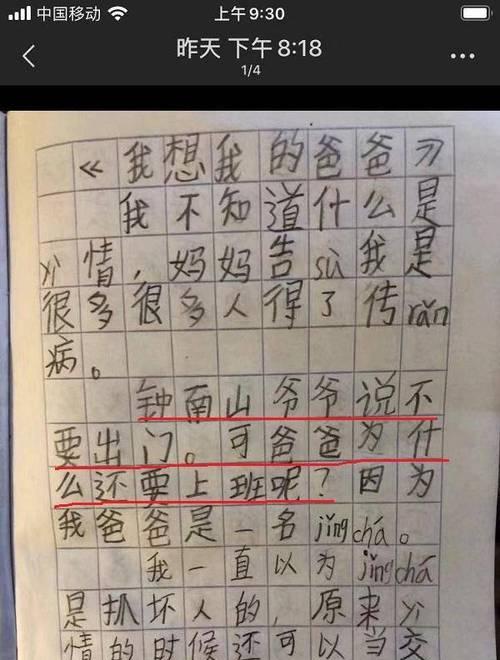 中国移动 上午 9:30
昨天 下午 8:18
1/4
《我想我的爸爸》
我不知道什么是
yì情，妈妈告sù我是
很多很多人得了传rǎn
病。
钟南山爷爷说不
要出门。可爸爸为什
么还要上班呢？因为
我爸爸是一名jǐngchá。
我一直以为jǐngchá
是抓坏人的，原来yì
情的时候还可以当交